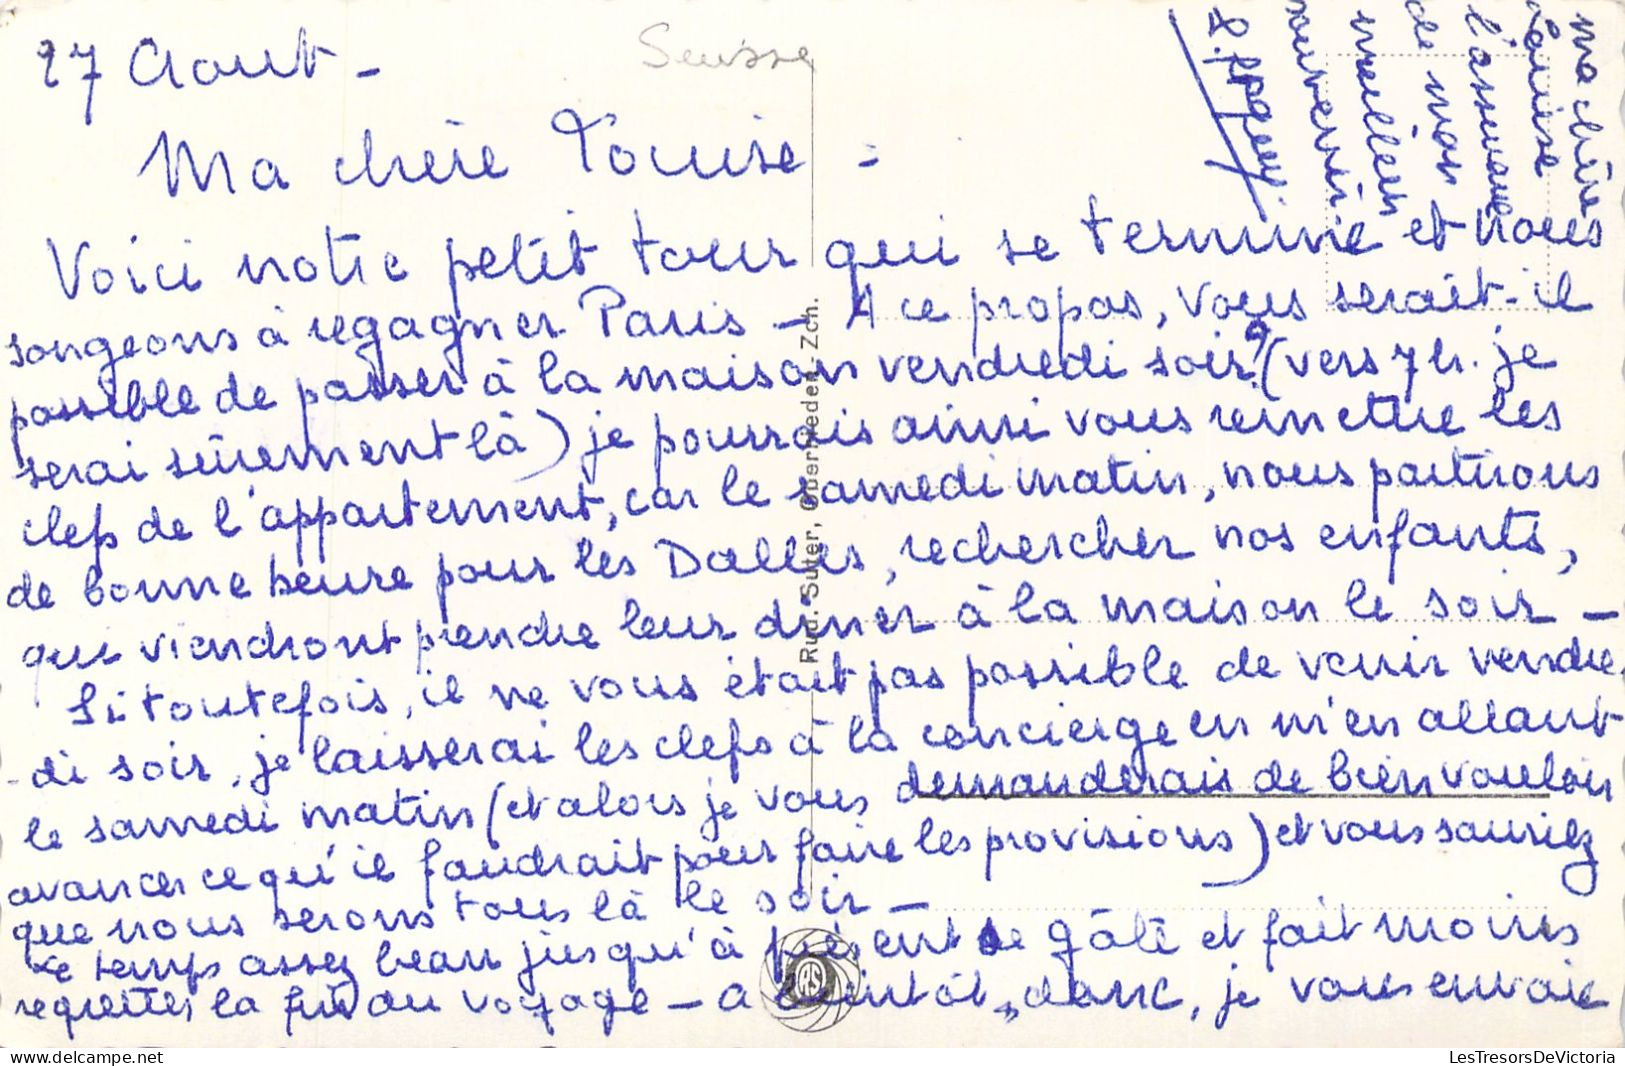 27 Aout -
Suisse
Ma chère Louise -
Voici notre petit tour qui se termine et nous
songeons à regagner Paris - A ce propos, vous serait-il
possible de passer à la maison vendredi soir? (vers 7 h. je
serai sûrement là) je pourrais ainsi vous remettre les
clefs de l'appartement, car le samedi matin, nous partirons
de bonne heure pour les Dalles, rechercher nos enfants,
qui viendront prendre leur dîner à la maison le soir -
Si toutefois, il ne vous était pas possible de venir vendre
-di soir, je laisserai les clefs à la concierge en m'en allant
le samedi matin (et alors je vous demanderais de bien vouloir
avancer ce qu'il faudrait pour faire les provisions) et vous sauriez
que nous serons tous là le soir -
Le temps assez beau jusqu'à présent se gâte et fait moins
regretter la fin du voyage - a bientôt donc, je vous envoie
ma chère
Louise
l'assurance
de mes
meilleurs
souvenirs
Rud. Suter, Oberrieden, Zch.
RS
LesTresorsDeVictoria